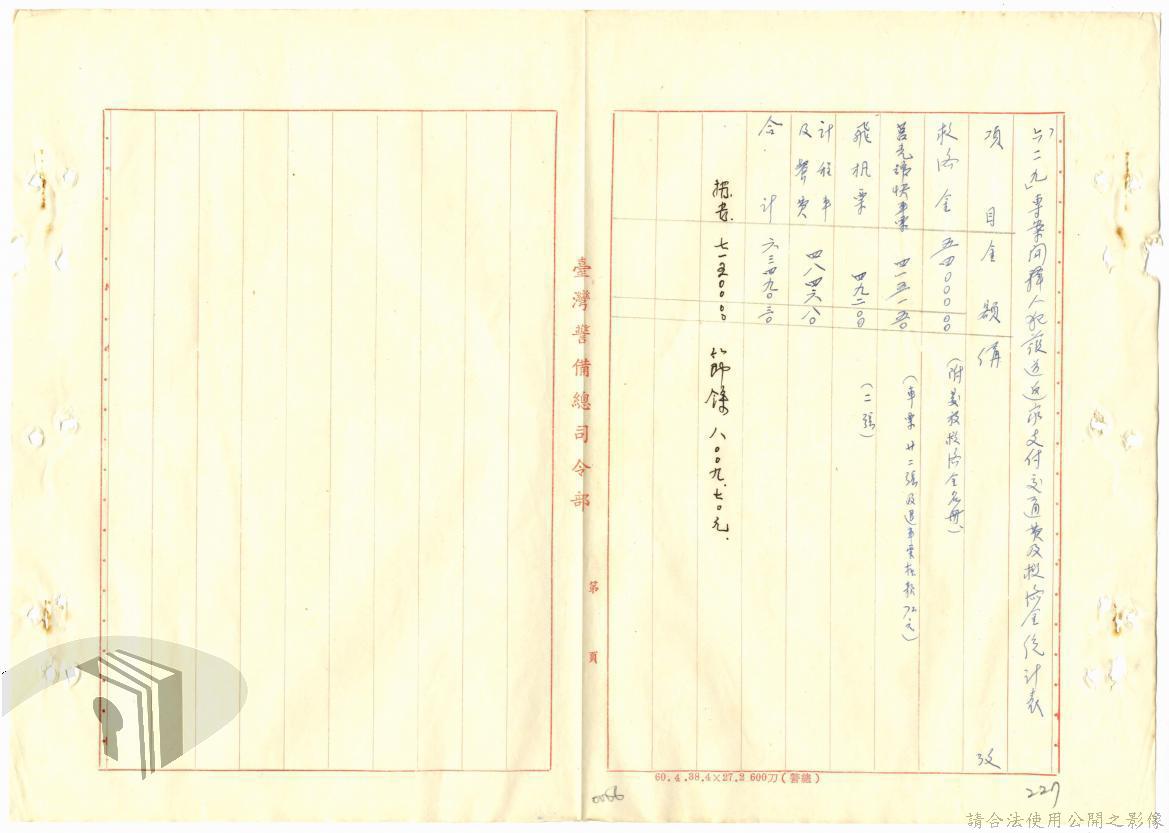 「六二九」專案開釋人犯護送返家支付交通費及救濟金統計表
項目金額備攷
救濟金 五四〇〇〇〇〇 (附具領救濟金名冊)
莒光號快車票 四一五一五〇 (車票廿二張及退車票扣款72元)
飛机票 四九二〇〇 (二張)
計程車
及餐費 四八四六八〇
合計 六三四九〇三〇
七一五〇〇〇〇 節餘八〇〇九.七〇元.
臺灣警備總司令部
第 頁
60.4.38.4×27.2 600刀(警總)
0066
227
請合法使用公開之影像